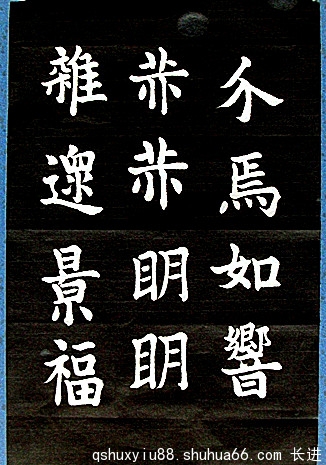 介焉如響
眀眀
雜遝景福
qshuxyiu88.shuhua66.com 长进